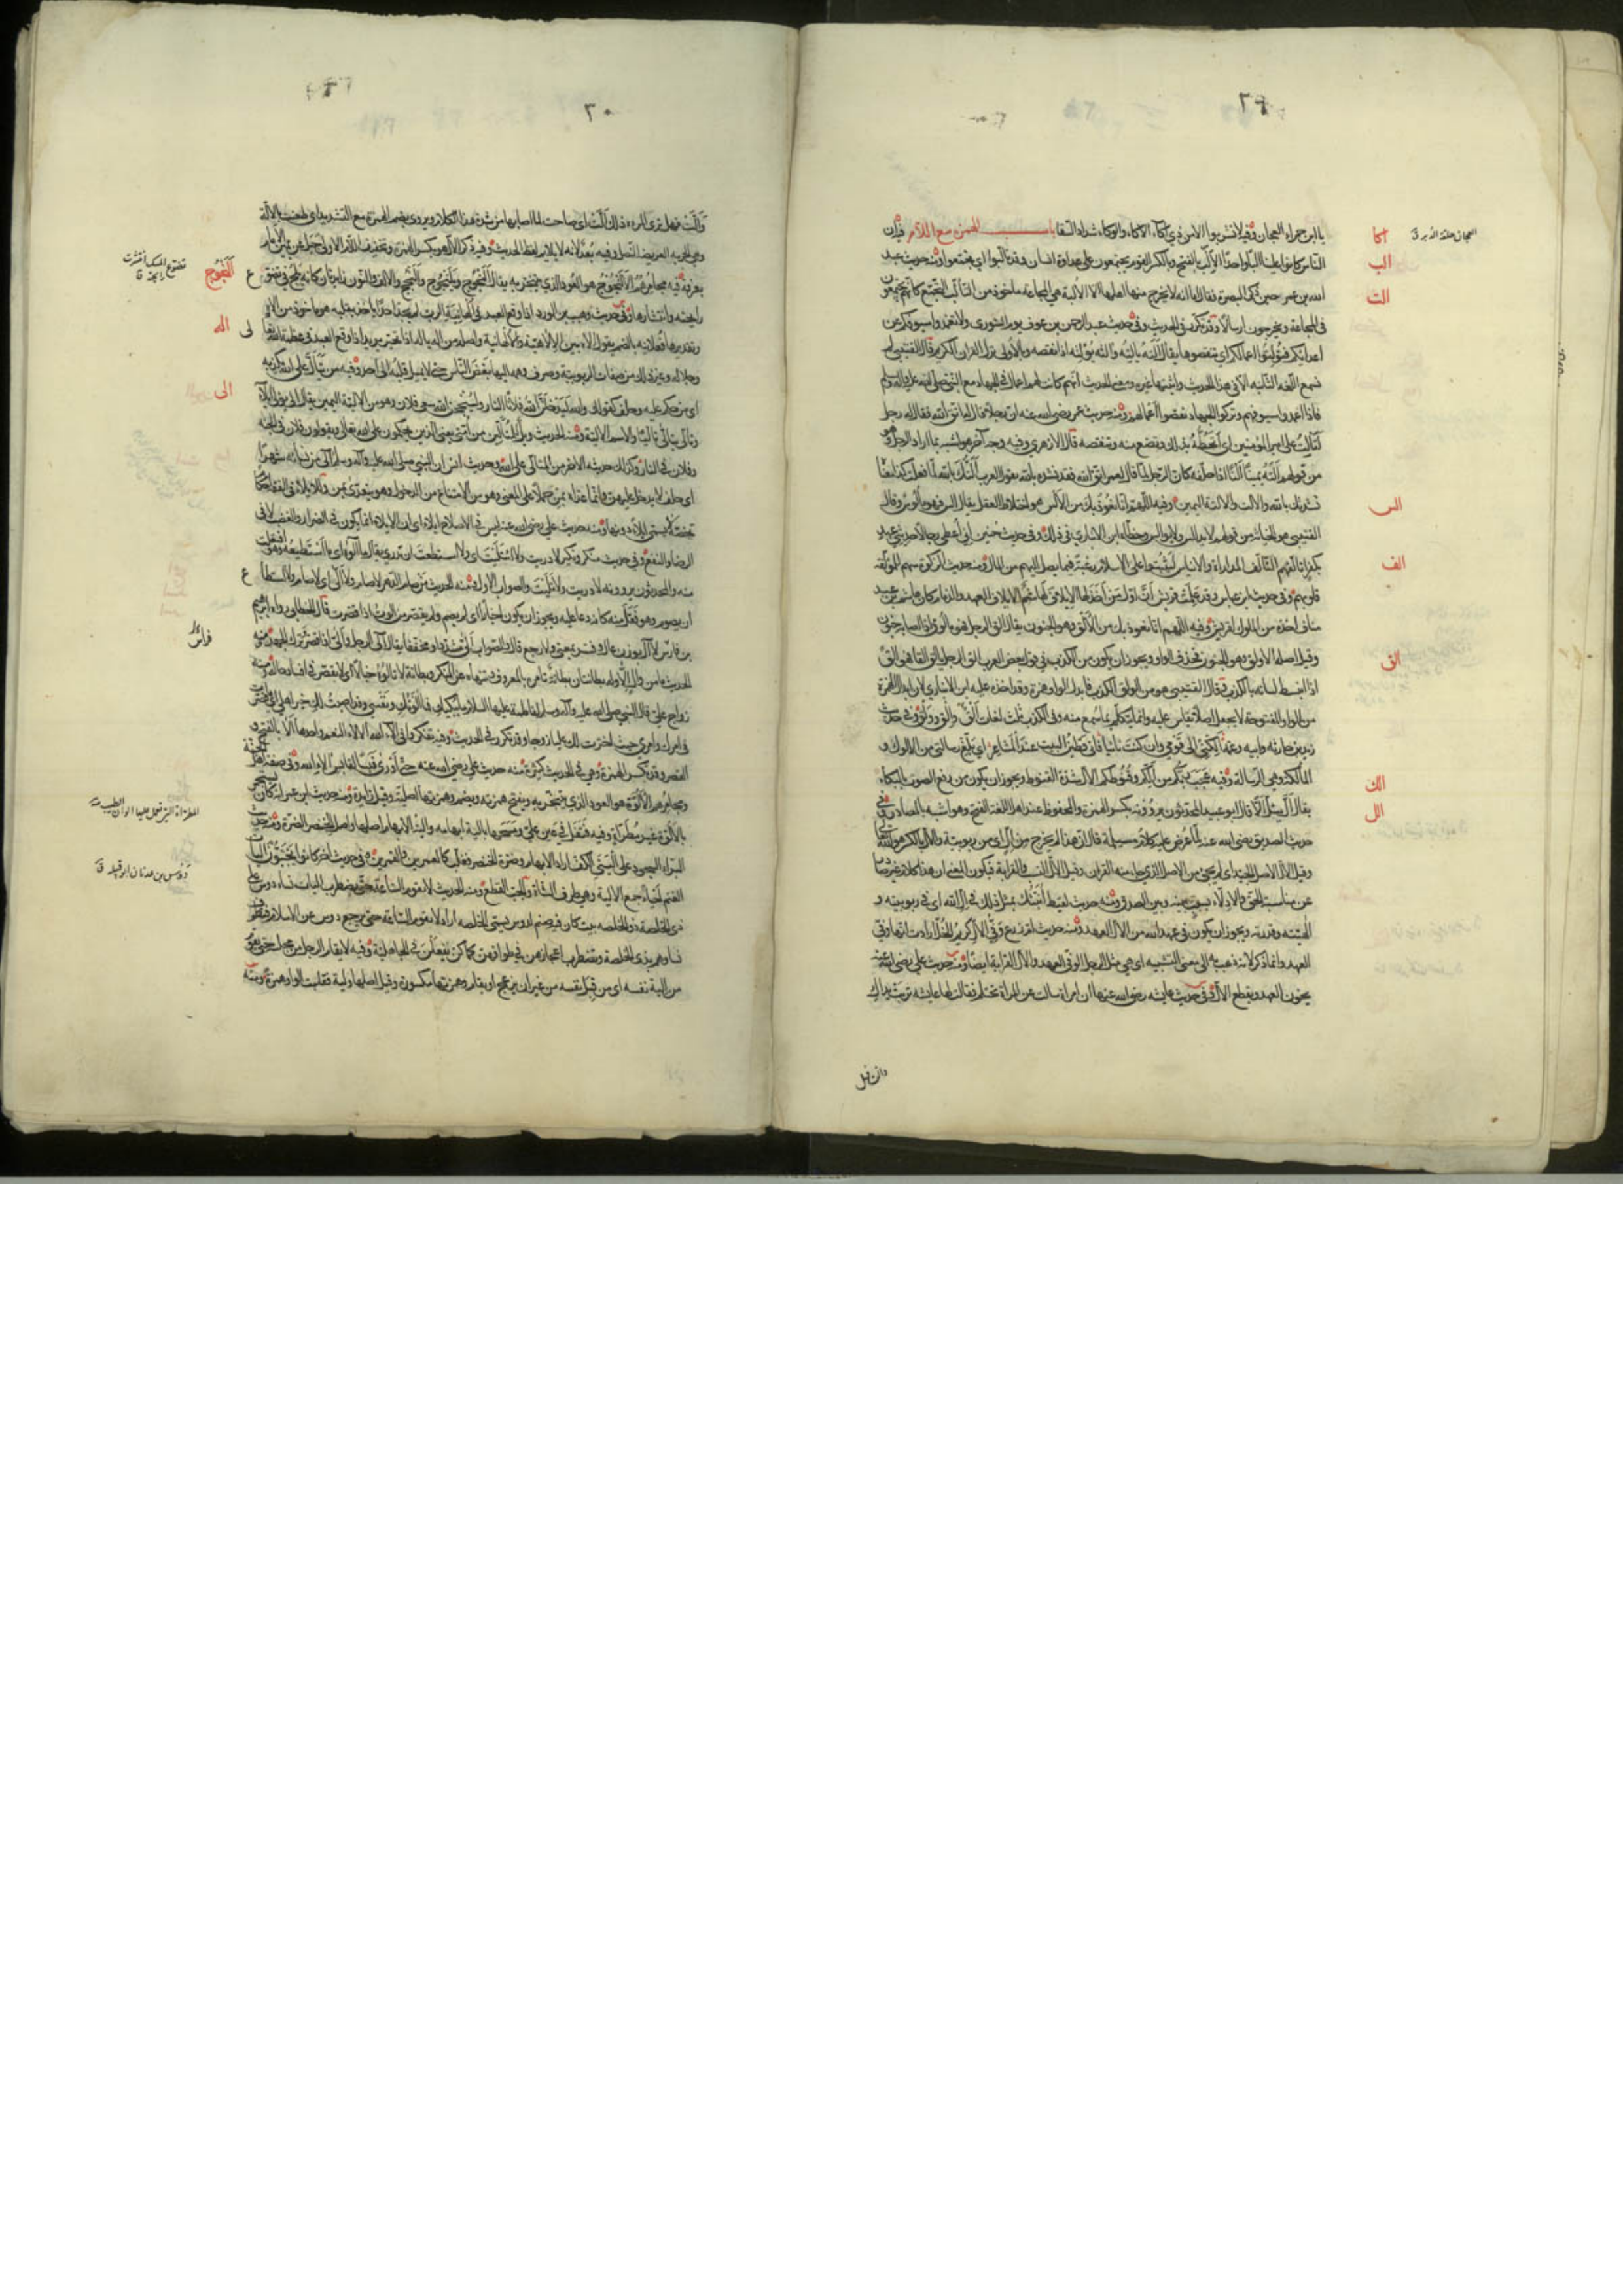 ٢٩
يا ابن حمراء العجان وقيل لا تشربوا الا من ذي اكاء الاكاء والوكاء شداد السقاء باب الهمزة مع اللام فيه ان
الناس كانوا علينا البا واحدا الالب بالفتح والكسر القوم يجتمعون على عداوة انسان وقد تألبوا اي تجمعوا ومنه حديث عبد
الله بن عمر حين ذكر البصرة فقال اما انه لا يخرج منها اهلها الا الالبة هي المجاعة مأخوذ من التألب التجمع كانهم يجتمعون
في المجاعة ويخرجون ارسالا وقد تكرر في الحديث وفي حديث عبد الرحمن بن عوف يوم الشورى ولا تغمدوا سيوفكم عن
اعدائكم فتولتوا اعمالكم اي تنقصوها يقال ألته يألته وآلته يؤلته اذا نقصه وبالاولى نزل القران الكريم قال القتيبي لم
تسمع اللغة الثانية الا في هذا الحديث واثبتها غيره ومعنى الحديث انهم كانت لهم اعمال في الجهاد مع النبي صلى الله عليه واله وسلم
فاذا اغمدوا سيوفهم وتركوا الجهاد نقصوا اعمالهم ومنه حديث عمر رضي الله عنه ان رجلا قال له اتق الله فقال له رجل
أتألت على امير المؤمنين اي أتحطه بذلك وتضع منه وتنقصه قال الازهري وفيه وجه آخر هو اشبه بما اراد الرجل وهو
من قولهم ألته يمينا ألتا اذا حلفه كان الرجل لما قال لعمر اتق الله فقد نشده بالله يقول العرب ألتك بالله لما فعلت كذا معناه
نشدتك بالله والالت والالتة اليمين وفيه اللهم انا نعوذ بك من الالس هو اختلاط العقل يقال الس فهو مألوس وقال
القتيبي هو الخيانة من قولهم لا يدالس ولا يوالس وخطأه ابن الانباري في ذلك وفي حديث حنين اني اعطي رجالا حديثي عهد
بكفر اتألفهم التألف المداراة والايناس ليثبتوا على الاسلام رغبة فيما يصل اليهم من المال ومنه حديث الزكوة سهم للمؤلفة
قلوبهم وفي حديث ابن عباس وقد علمت قريش ان اول من اخذ لها الايلاف لهاشم الايلاف العهد والذمام كان هاشم بن عبد
مناف اخذه من الملوك لقريش وفيه اللهم انا نعوذ بك من الألق هو الجنون يقال القِ الرجل فهو مألوق اذا اصابه جنون
وقيل اصله الاولق وهو الجنون فحذف الواو ويجوز ان يكون من الكذب في قول بعض العرب الق الرجل يالق القا فهو الق
اذا انبسط لسانه بالكذب وقال القتيبي هو من الولق الكذب فابدل الواو همزة وقد اخذه عليه ابن الانباري لان ابدال الهمزة
من الواو المفتوحة لا يجعل اصلا يقاس عليه وانما يتكلم بما سمع منه وفي الكذب ثلث لغات الق والق وولق وفي حديث
زيد بن حارثة وابيه وعمه ألكني الى قومي وان كنت نائيا فاني قطين البيت عند المشاعر اي بلغ رسالتي من الالوك و
المالكة وهي الرسالة وفيه عجب ربكم من الكم وقنوطكم الال شدة القنوط ويجوز ان يكون من رفع الصوت بالبكاء
يقال أل يئل ألا قال ابو عبيد المحدثون يروونه بكسر الهمزة والمحفوظ عند اهل اللغة الفتح وهو اشبه بالمصادر وفي
حديث الصديق رضي الله عنه لما عرض عليه كلام مسيلمة قال ان هذا لم يخرج من ال اي من ربوبية والال بالكسر هو الله تعالى
وقيل الال الاصل الجيد اي لم يجئ من الاصل الذي جاء منه القران وقيل الال النسب والقرابة فيكون المعنى ان هذا كلام غير صادر
عن مناسبة الحق والادلاء بسبب بينه وبين الصدق ومنه حديث لقيط أنبئك بمثل ذلك في ال الله اي في ربوبيته و
الهيته وقدرته ويجوز ان يكون في عهد الله من الال العهد ومنه حديث ام زرع وفي الال كريم الخل ارادت انها وفية
العهد وانما ذكر لانه ذهب به الى معنى التشبيه اي هي مثل الرجل الوفي العهد والال القرابة ايضا ومنه حديث علي رضي الله عنه
يخون العهد ويقطع الال وفي حديث عايشة رضي الله عنها ان امراة سالت عن المراة تحتلم فقالت لها عايشة تربت يداك
اكا
الب
الت
الس
الف
الق
الك
الل
العجان حلقة الدبر ق
٣٠
وألت وهل ترى المرءة ذلك ألت اي صاحت لما اصابها من شدة هذا الكلام ويروى بضم الهمزة مع التشديد اي طعنت بالالة
وهي الحربة العريضة النصل وفيه بعد لانه لا يلايم لفظ الحديث وفيه ذكر الال هو بكسر الهمزة وتخفيف اللام الاولى جبل عن يمين الامام
بعرفة وفيه مجامرهم الالنجوج هو العود الذي يتبخر به يقال النجوج ويلنجوج والنجج والالف والنون زايدتان كانه يلج في تضوع
رايحته وانتشارها وفي حديث وهيب بن الورد اذا وقع العبد في الهانية الرب لم يجد احدا ياخذ بقلبه هو ماخوذ من اله
وتقديرها فعلانية بالضم يقول اله بين الالاهية والالهانية واصله من اله ياله اذا تحير يريد اذا وقع العبد في عظمة الله تعالى
وجلاله وغير ذلك من صفات الربوبية وصرف وهمه اليها ابغض الناس حتى لا يميل قلبه الى احد وفيه من يتأل على الله يكذبه
اي من حكم عليه وحلف كقولك والله ليدخلن الله فلانا النار ولينجحن الله سعي فلان وهو من الالية اليمين يقال الى يولي ايلاء
وتألى يتألى تأليا والاسم الالية ومنه الحديث ويل للمتألين من امتي يعني الذين يحكمون على الله تعالى ويقولون فلان في الجنة
وفلان في النار وكذلك حديثه الاخر من المتألي على الله وحديث انس ان النبي صلى الله عليه واله وسلم آلى من نسائه شهرا
اي حلف لا يدخل عليهن وانما عداه بمن حملا على المعنى وهو من الامتناع من الدخول وهو يتعدى بمن وللايلاء في الفقه احكام
تخصه لا يسمى ايلاء دونها ومنه حديث علي رضي الله عنه ليس في الاصلاح ايلاء اي ان الايلاء انما يكون في الضرار والغضب لا في
الرضاء والنفع وفي حديث منكر ونكير لا دريت ولا ائتليت اي ولا استطعت ان تدري يقال ما آلوه اي ما استطيعه وهو افتعلت
منه والمحدثون يروونه لا دريت ولا تليت والصواب الاول ومنه الحديث من صام الدهر لا صام ولا ألّى اي لا صام ولا استطاع
ان يصوم وهو فعل منه كانه دعا عليه ويجوز ان يكون اخبارا اي لم يصم ولم يقصر من الوت اذا قصرت قال الخطابي رواه ابرهيم
بن فارس لا آل بوزن عال وفسر بمعنى ولا رجع قال والصواب ألّى مشددا ومخففا يقال الى الرجل وألّى اذا قصر وترك الجهد ومنه
الحديث ما من وال الا وله بطانتان بطانة تامره بالمعروف وتنهاه عن المنكر وبطانة لا تالوه خبالا اي لا تقصر في افساد حاله ومنه
زواج علي قال النبي صلى الله عليه وآله وسلم لفاطمة عليها السلام ما يبكيك فما الوتك ونفسي وقد اصبت لك خير اهلي اي ما قصرت
في امرك وامري حيث اخترت لك عليا زوجا وقد تكرر في الحديث وفيه تفكروا في آلاء الله الالاء النعم واحدها ألا بالفتح و
القصر وقد تكسر الهمزة وهي في الحديث كثيرة ومنه حديث علي رضي الله عنه حتى اورى قبسا لقابس الاء الله وفي صفة اهل الجنة
ومجامرهم الالوة هو العود الذي يتبخر به وتفتح همزته ويضم وهمزتها اصلية وقيل زايدة ومنه حديث ابن عمر انه كان يستجمر
بالالوة غير مطراة وفيه فتفل في عين علي ومسحها بالية ابهامه والية الابهام اصلها واصل الخنصر الضرة ومنه حديث
البراء السجود على اليتي الكف اراد الالية الابهام وضرة الخنصر فغلب كالعمرين والقمرين وفي حديث اخر كانوا يجتبون اليات
الغنم احياء جمع الالية وهي طرف الشاة والجب القطع ومنه الحديث لا تقوم الساعة حتى تضطرب اليات نساء دوس على
ذي الخلصة ذو الخلصة بيت كان فيه صنم لدوس يسمى الخلصة اراد لا تقوم الساعة حتى يرجع دوس عن الاسلام فتطوف
نساوهم بذي الخلصة وتضطرب اعجازهن في طوافهن كما كن يفعلن في الجاهلية وفيه لا يقام الرجل من مجلسه حتى يقوم
من الية نفسه اي من قبل نفسه من غير ان يزعج او يقام وهمزتها مكسورة وقيل اصلها ولية فقلبت الواو همزة ومنه
النجوج
اله
الى